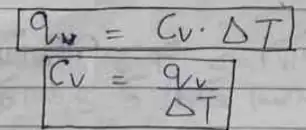 qᵥ = Cᵥ · ΔT
Cᵥ = qᵥ / ΔT